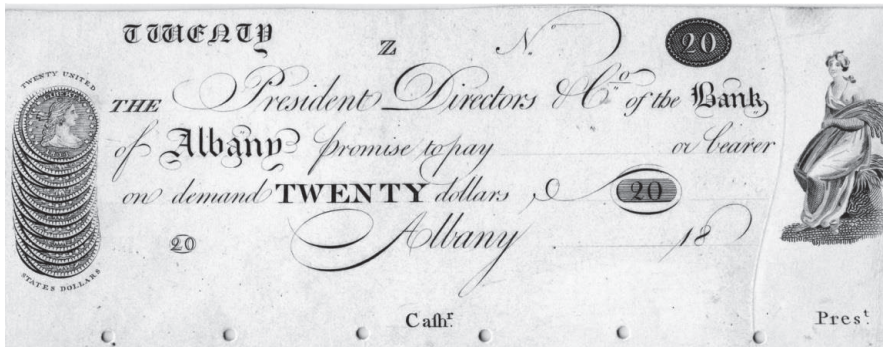 TWENTY Z N.º 20
TWENTY UNITED
THE President Directors & Cº of the Bank
of Albany promise to pay or bearer
on demand TWENTY dollars 20
20 Albany 18
STATES DOLLARS
Caſhʳ. Presᵗ.